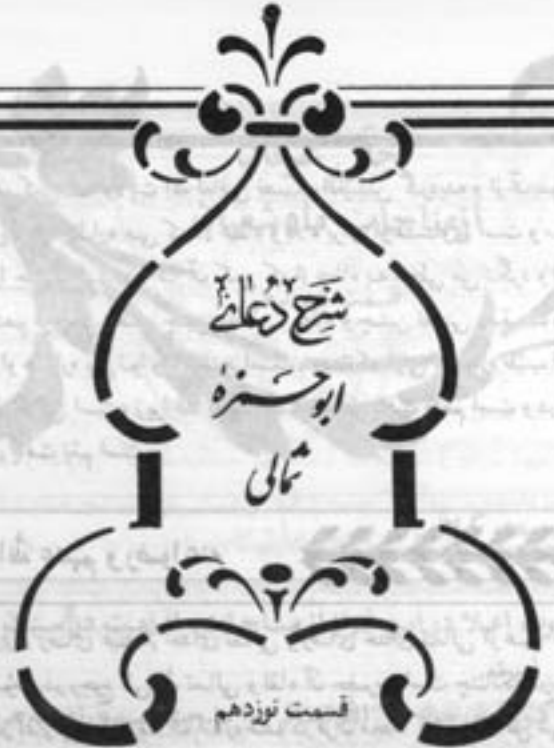 شرح دعای
ابوحمزهٔ
ثمالی
قسمت نوزدهم